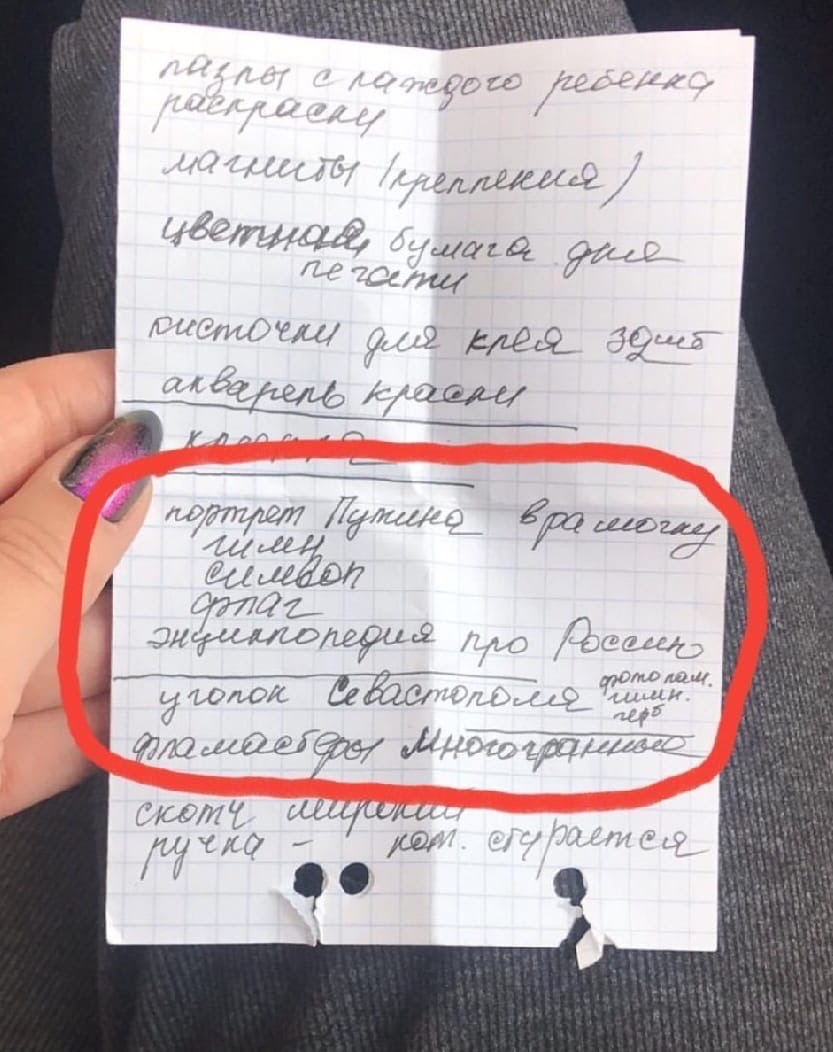 пазлы с каждого ребенка
раскраски
магниты (крепления)
цветная бумага для
печати
кисточки для клея 32шт
акварель краски
портрет Путина в рамочку
гимн
символ
флаг
энциклопедия про Россию
уголок Севастополя фотопам.
гимн.
герб
фламастеры многогранные
скотч широкий
ручка - кот. стирается